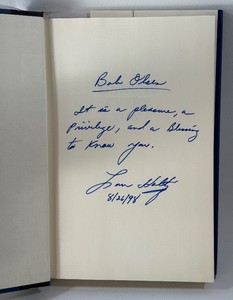 Bob Olsen
It is a pleasure, a
Privilege, and a Blessing
to Know you.
Lou Holtz
8/26/98